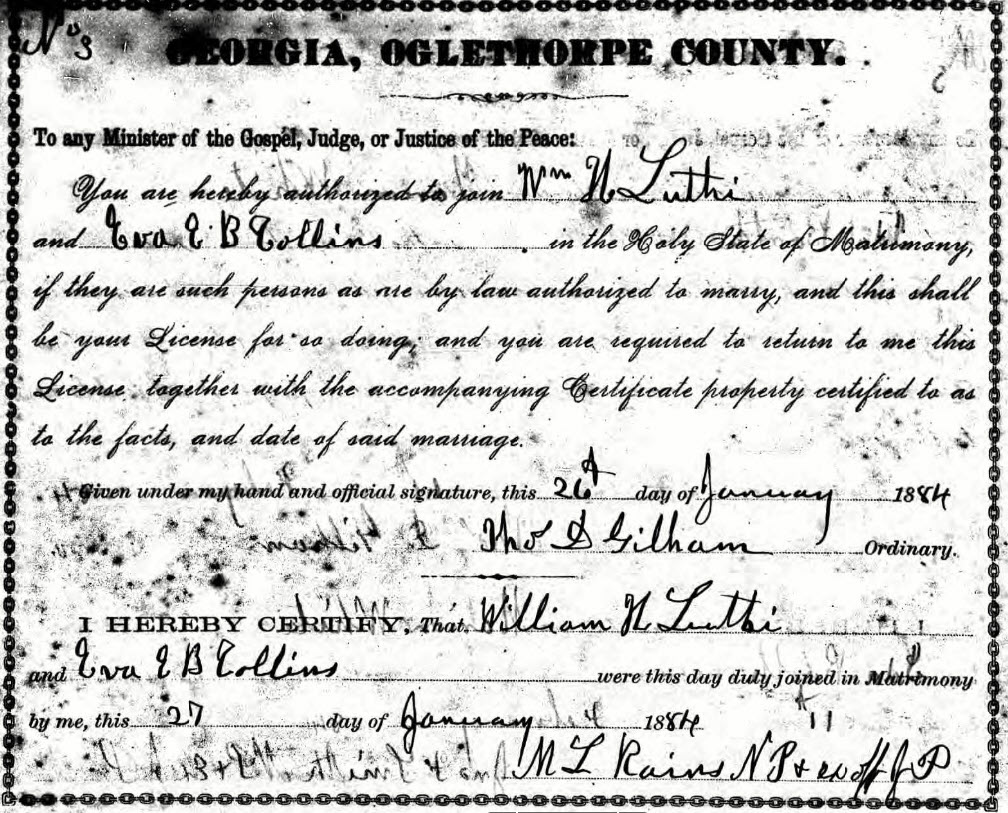 No 3
GEORGIA, OGLETHORPE COUNTY.
To any Minister of the Gospel, Judge, or Justice of the Peace:
You are hereby authorized to join Wm H Luthi
and Eva E B Collins in the Holy State of Matrimony,
if they are such persons as are by law authorized to marry, and this shall
be your License for so doing; and you are required to return to me this
License together with the accompanying Certificate property certified to as
to the facts, and date of said marriage.
Given under my hand and official signature, this 26th day of January 1884
Tho D Gilham Ordinary.
I HEREBY CERTIFY, That William H Luthi
and Eva E B Collins were this day duly joined in Matrimony
by me, this 27 day of January 1884
M L Rains N P & ex off J P